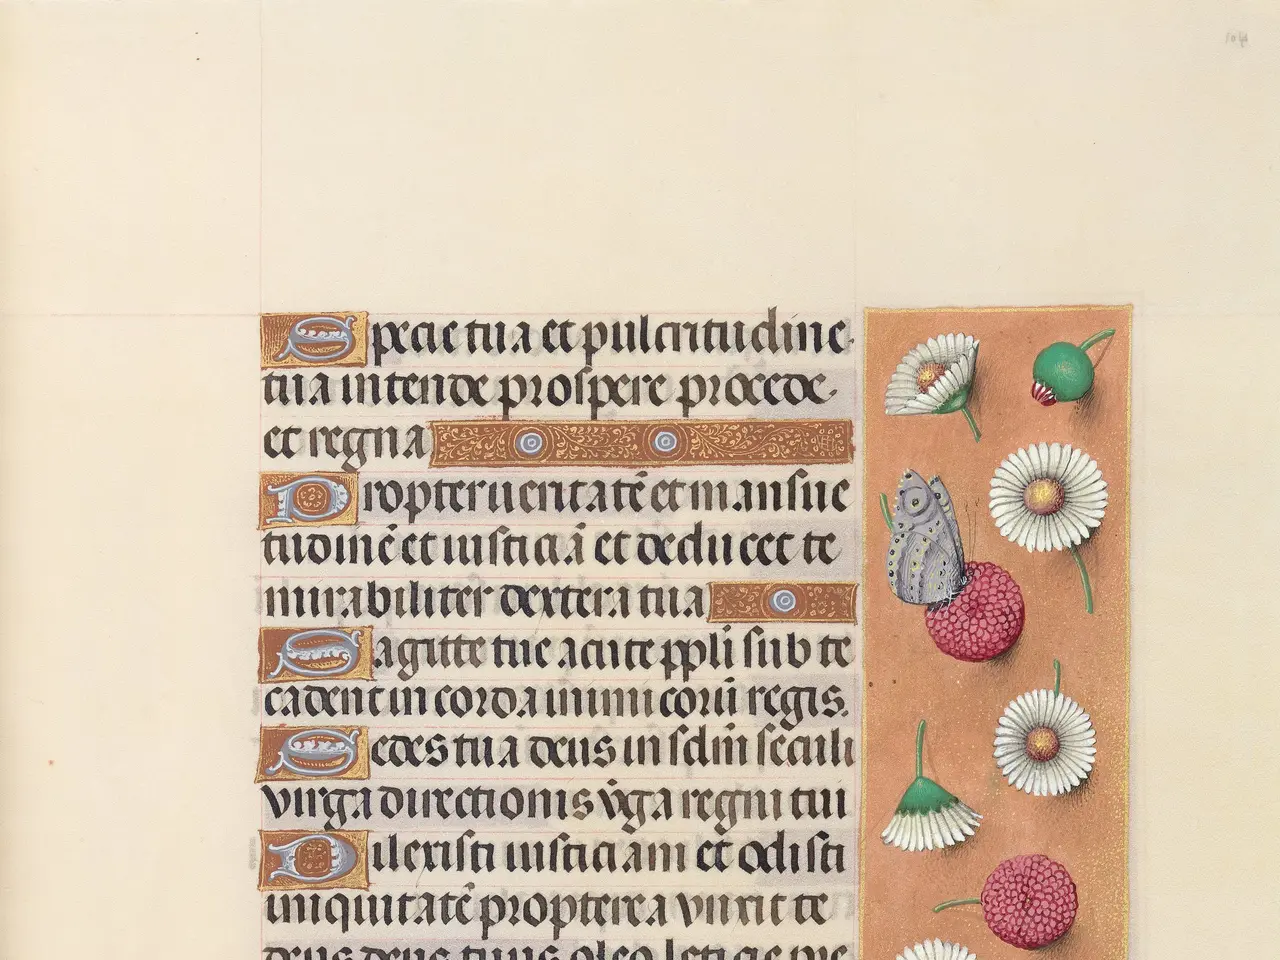 104
Specie tua et pulcritudine
tua intende prospere procede
et regna
Propter ueritatē et mansue
tudinē et iusticiā et deducet te
mirabiliter dextera tua
Sagitte tue acute ppli sub te
cadent in corda inimicorū regis.
Sedes tua deus in sclm̄ seculi
virga directionis v̄ga regni tui
Dilexisti iusticiam et odisti
iniquitatē propterea vnxit te
deus deus tuus oleo leticie pre